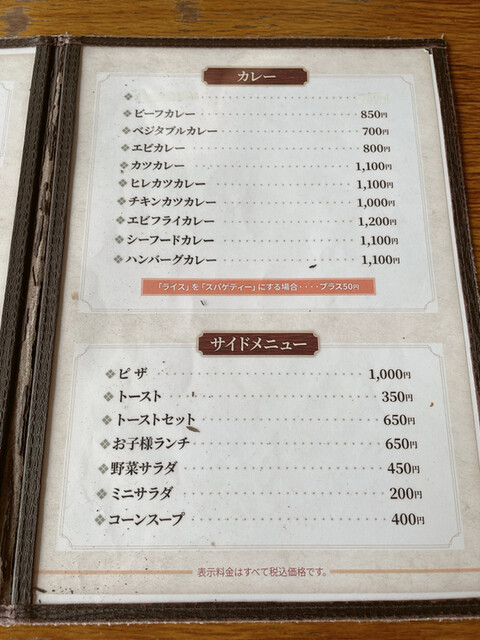 カレー
ビーフカレー 850円
ベジタブルカレー 700円
エビカレー 800円
カツカレー 1,100円
ヒレカツカレー 1,100円
チキンカツカレー 1,000円
エビフライカレー 1,200円
シーフードカレー 1,100円
ハンバーグカレー 1,100円
「ライス」を「スパゲティー」にする場合・・・・プラス50円
サイドメニュー
ピザ 1,000円
トースト 350円
トーストセット 650円
お子様ランチ 650円
野菜サラダ 450円
ミニサラダ 200円
コーンスープ 400円
表示料金はすべて税込価格です。